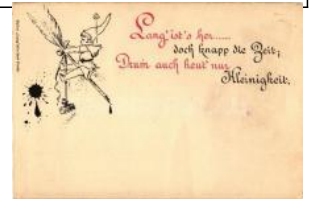 Lang' ist's her.....
doch knapp die Zeit;
Drum auch heut' nur
Kleinigkeit.